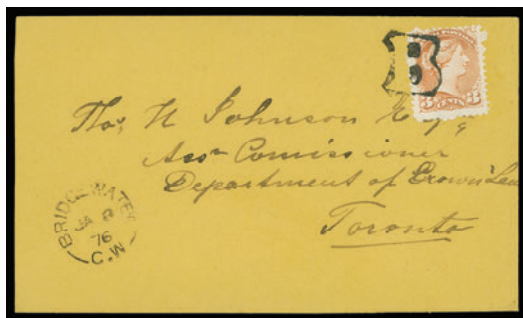 Thos. H Johnson Esq,
Asst Comissioner
Department of Crown Lan
Toronto
BRIDGEWATER
JA 8
76
C.W
3 CENTS 3